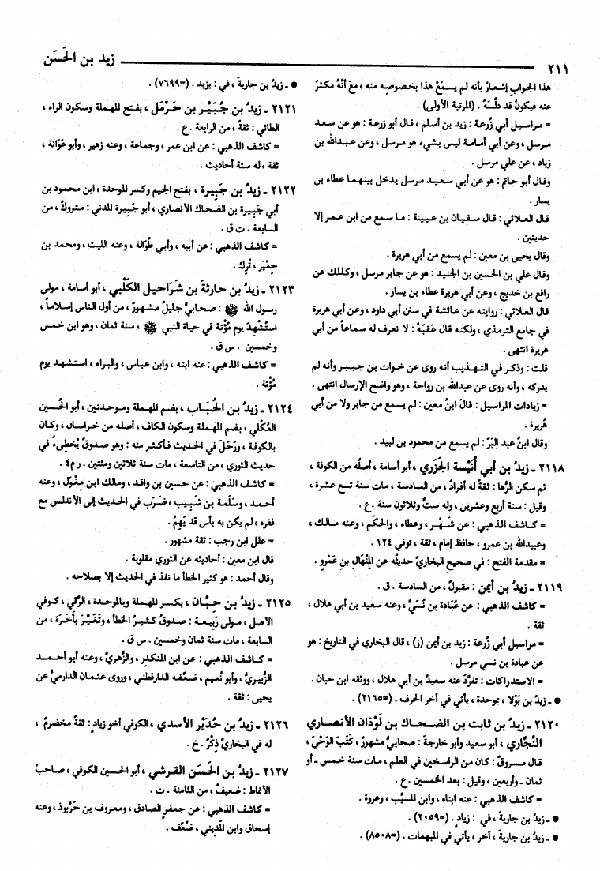 ٢١١
زيد بن الحَسَن
هذا الجواب إشعار بأنه لم يسمعْ هذا بخصوصه منه ، مع أنهُ مكثرٌ
عنه فيكون قد دلّسَهُ . (المرتبة الأولى) .
= مراسيل أبي زُرعة : زيد بن أسلم ، قال أبو زرعة : هو عن سعد
مرسل ، وعن أبي أمامة ليس بشيء هو مرسل ، وعن عبدالله بن
زياد ، عن علي مرسل .
وقال أبو حاتم : هو عن أبي سعيد مرسل يدخل بينهما عطاء بن
يسار .
قال العلائي : قال سفيان بن عيينة : ما سمع من ابن عمر إلا
حديثين .
وقال يحيى بن معين : لم يسمع من أبي هريرة .
وقال علي بن الحسين بن الجنيد : هو عن جابر مرسل ، وكذلك عن
رافع بن خديج ، وعن أبي هريرة عطاء بن يسار .
قال العلائي : روايته عن عائشة في سنن أبي داود ، وعن أبي هريرة
في جامع الترمذي ، ولكنه قال عَقِيبَهُ : لا تعرف له سماعاً من أبي
هريرة انتهى .
قلت : وذكر في التهذيب أنه روى عن خوات بن جبير وأنه لم
يدركه ، وأنه روى عن عبدالله بن رواحة ، وهو واضح الإرسال انتهى .
= زيادات المراسيل : قال ابنُ معين : لم يسمع من جابر ولا من أبي
هريرة .
وقال ابنُ عبد البَرّ : لم يسمع من محمود بن لبيد .
٢١١٨ ـ زيدُ بن أبي أُنَيْسة الجَزَري ، أبو أسامة ، أصله من الكوفة ،
ثم سكن الرُّها : ثقةٌ له أفرادٌ ، من السادسة ، مات سنة تسع عشرة ،
وقيل : سنة أربع وعشرين ، وله ستٌّ وثلاثون سنة . ع .
= كاشف الذهبي : عن شَهْر ، وعطاء ، والحكَم ، وعنه مالك ،
وعبيدالله بن عمرو ، حافظ إمام ، ثقة ، توفي ١٢٤ .
= مقدمة الفتح : في صحيح البخاري حديثُه عن المِنْهال بن عَمْرو .
٢١١٩ ـ زيد بن أيمن : مقبولٌ ، من السادسة . ق .
= كاشف الذهبي : عن عُبَادة بن نُسَيّ ، وعنه سعيد بن أبي هلال ،
ثقة .
= مراسيل أبي زُرعة : زيد بن أيمن (ز) ، قال البخاري في التاريخ : هو
عن عبادة بن نسي مرسل .
= الاستدراكات : تفرَّدَ عنه سعيد بن أبي هلال ، ووثقه ابن حبان .
● ـ زيد بن بَوْلا ، بموحدة ، يأتي في آخر الحرف . (=٢١٦٥) .
٢١٢٠ ـ زيدُ بن ثابت بن الضحاك بن لَوْذان الأنصاري
النجَّاري ، أبو سعيد وأبو خارجة : صحابيٌّ مشهورٌ ، كتَبَ الوَحْيَ ،
قال مسروقٌ : كان من الراسخين في العلم ، مات سنة خمس ـ أو
ثمان ـ وأربعين ، وقيل : بعد الخمسين . ع .
= كاشف الذهبي : عنه ابناه ، وابن المُسَيَّب ، وعروة .
● ـ زيدُ بن جارية ، في : زيادٍ . (=٢٠٥٩) .
● ـ زيدُ بن جارية ، آخر ، يأتي في المبهمات . (=٨٥٠٨) .
● ـ زيدُ بن جارية ، في : يزيد . (=٧٦٩٩) .
٢١٢١ ـ زيدُ بن جُبَيْر بن حَرْمَل ، بفتح المهملة وسكون الراء ،
الطائي : ثقةٌ ، من الرابعة . ع .
= كاشف الذهبي : عن ابن عمر ، وجماعة ، وعنه زهير ، وأبو عَوَانة ،
ثقة ، له ستة أحاديث .
٢١٢٢ ـ زيدُ بن جَبِيرة ، بفتح الجيم وكسر الموحدة ، ابن محمود بن
أبي جَبِيرة بن الضحاك الأنصاري ، أبو جَبِيرة المدني : متروكٌ ، من
السابعة . ت ق .
= كاشف الذهبي : عن أبيه ، وأبي طُوَالة ، وعنه الليث ، ومحمد بن
حِمْيَر ، تُرِك .
٢١٢٣ ـ زيدُ بن حارثة بن شَرَاحيل الكَلْبي ، أبو أسامة ، مولى
رسول الله ﷺ : صحابيٌّ جليلٌ مشهورٌ ، من أول الناس إسلاماً ،
استُشْهِدَ يومَ مُؤْتة في حياة النبي ﷺ ، سنة ثمان ، وهو ابن خمس
وخمسين . س ق .
= كاشف الذهبي : عنه ابنه ، وابن عباس ، والبراء ، استشهد يوم
مُؤْتة .
٢١٢٤ ـ زيدُ بن الحُبَاب ، بضم المهملة وموحدتين ، أبو الحسين
العُكْلي ، بضم المهملة وسكون الكاف ، أصله من خراسان ، وكان
بالكوفة ، ورَحَلَ في الحديث فأكثَرَ منه : وهو صدوقٌ يُخطِيءُ في
حديث الثوري ، من التاسعة ، مات سنة ثلاثين ومئتين . ر م ٤ .
= كاشف الذهبي : عن حسين بن واقد ، ومالك ابن مِغْول ، وعنه
أحمد ، وسلَمة بن شَبِيب ، ضَرَبَ في الحديث إلى الأندلس مع
فقره ، لم يكن به بأس قد يَهِمُ .
= علل ابن رجب : ثقة مشهور .
قال ابن معين : أحاديثه عن الثوري مقلوبة .
وقال أحمد : هو كثير الخطأ ما نفذ في الحديث إلا بصلاحه .
٢١٢٥ ـ زيدُ بن حِبَّان ، بكسر المهملة وبالموحدة ، الرَّقّي ، كوفي
الأصل ، مولى ربيعة : صدوقٌ كثيرُ الخطأ ، وتَغَيَّر بأَخَرةَ ، من
السابعة ، مات سنة ثمان وخمسين . س ق .
= كاشف الذهبي : عن ابن المنكدر ، والزُّهري ، وعنه أبو أحمد
الزُّبيري ، وأبو نُعيم ، ضعَّفه الدارقطني ، وروى عثمان الدارمي عن
يحيى : ثقة .
٢١٢٦ ـ زيدُ بن حُدَيْر الأسدي ، الكوفي أخو زيادٍ : ثقةٌ مخضرمٌ ،
له في البخاريّ ذِكْرٌ . خ .
٢١٢٧ ـ زيدُ بن الحَسَن القرشي ، أبو الحسين الكوفي ، صاحبُ
الأنماط : ضعيفٌ ، من الثامنة . ت .
= كاشف الذهبي : عن جعفر الصادق ، ومعروف بن خَرَّبوذ ، وعنه
إسحاق وابن المَدِيني ، ضُعِّف .